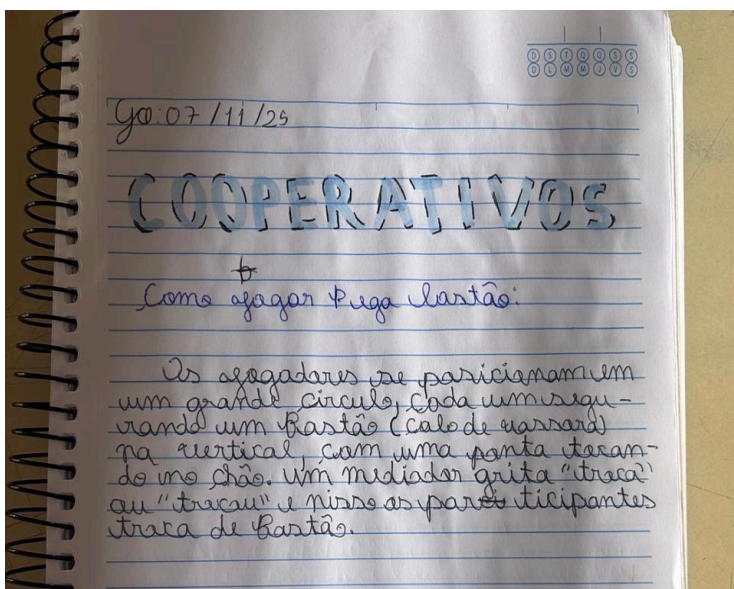 D S T Q Q S S
D L M M J V S
Go: 07/11/25
COOPERATIVOS
Como jogar Pega bastão:
Os jogadores se posicionam em
um grande círculo, cada um segu-
rando um bastão (cabo de vassora)
na vertical, com uma ponta tocan-
do no chão. Um mediador grita "troca"
ou "trocou" e nisso os participantes
troca de bastão.